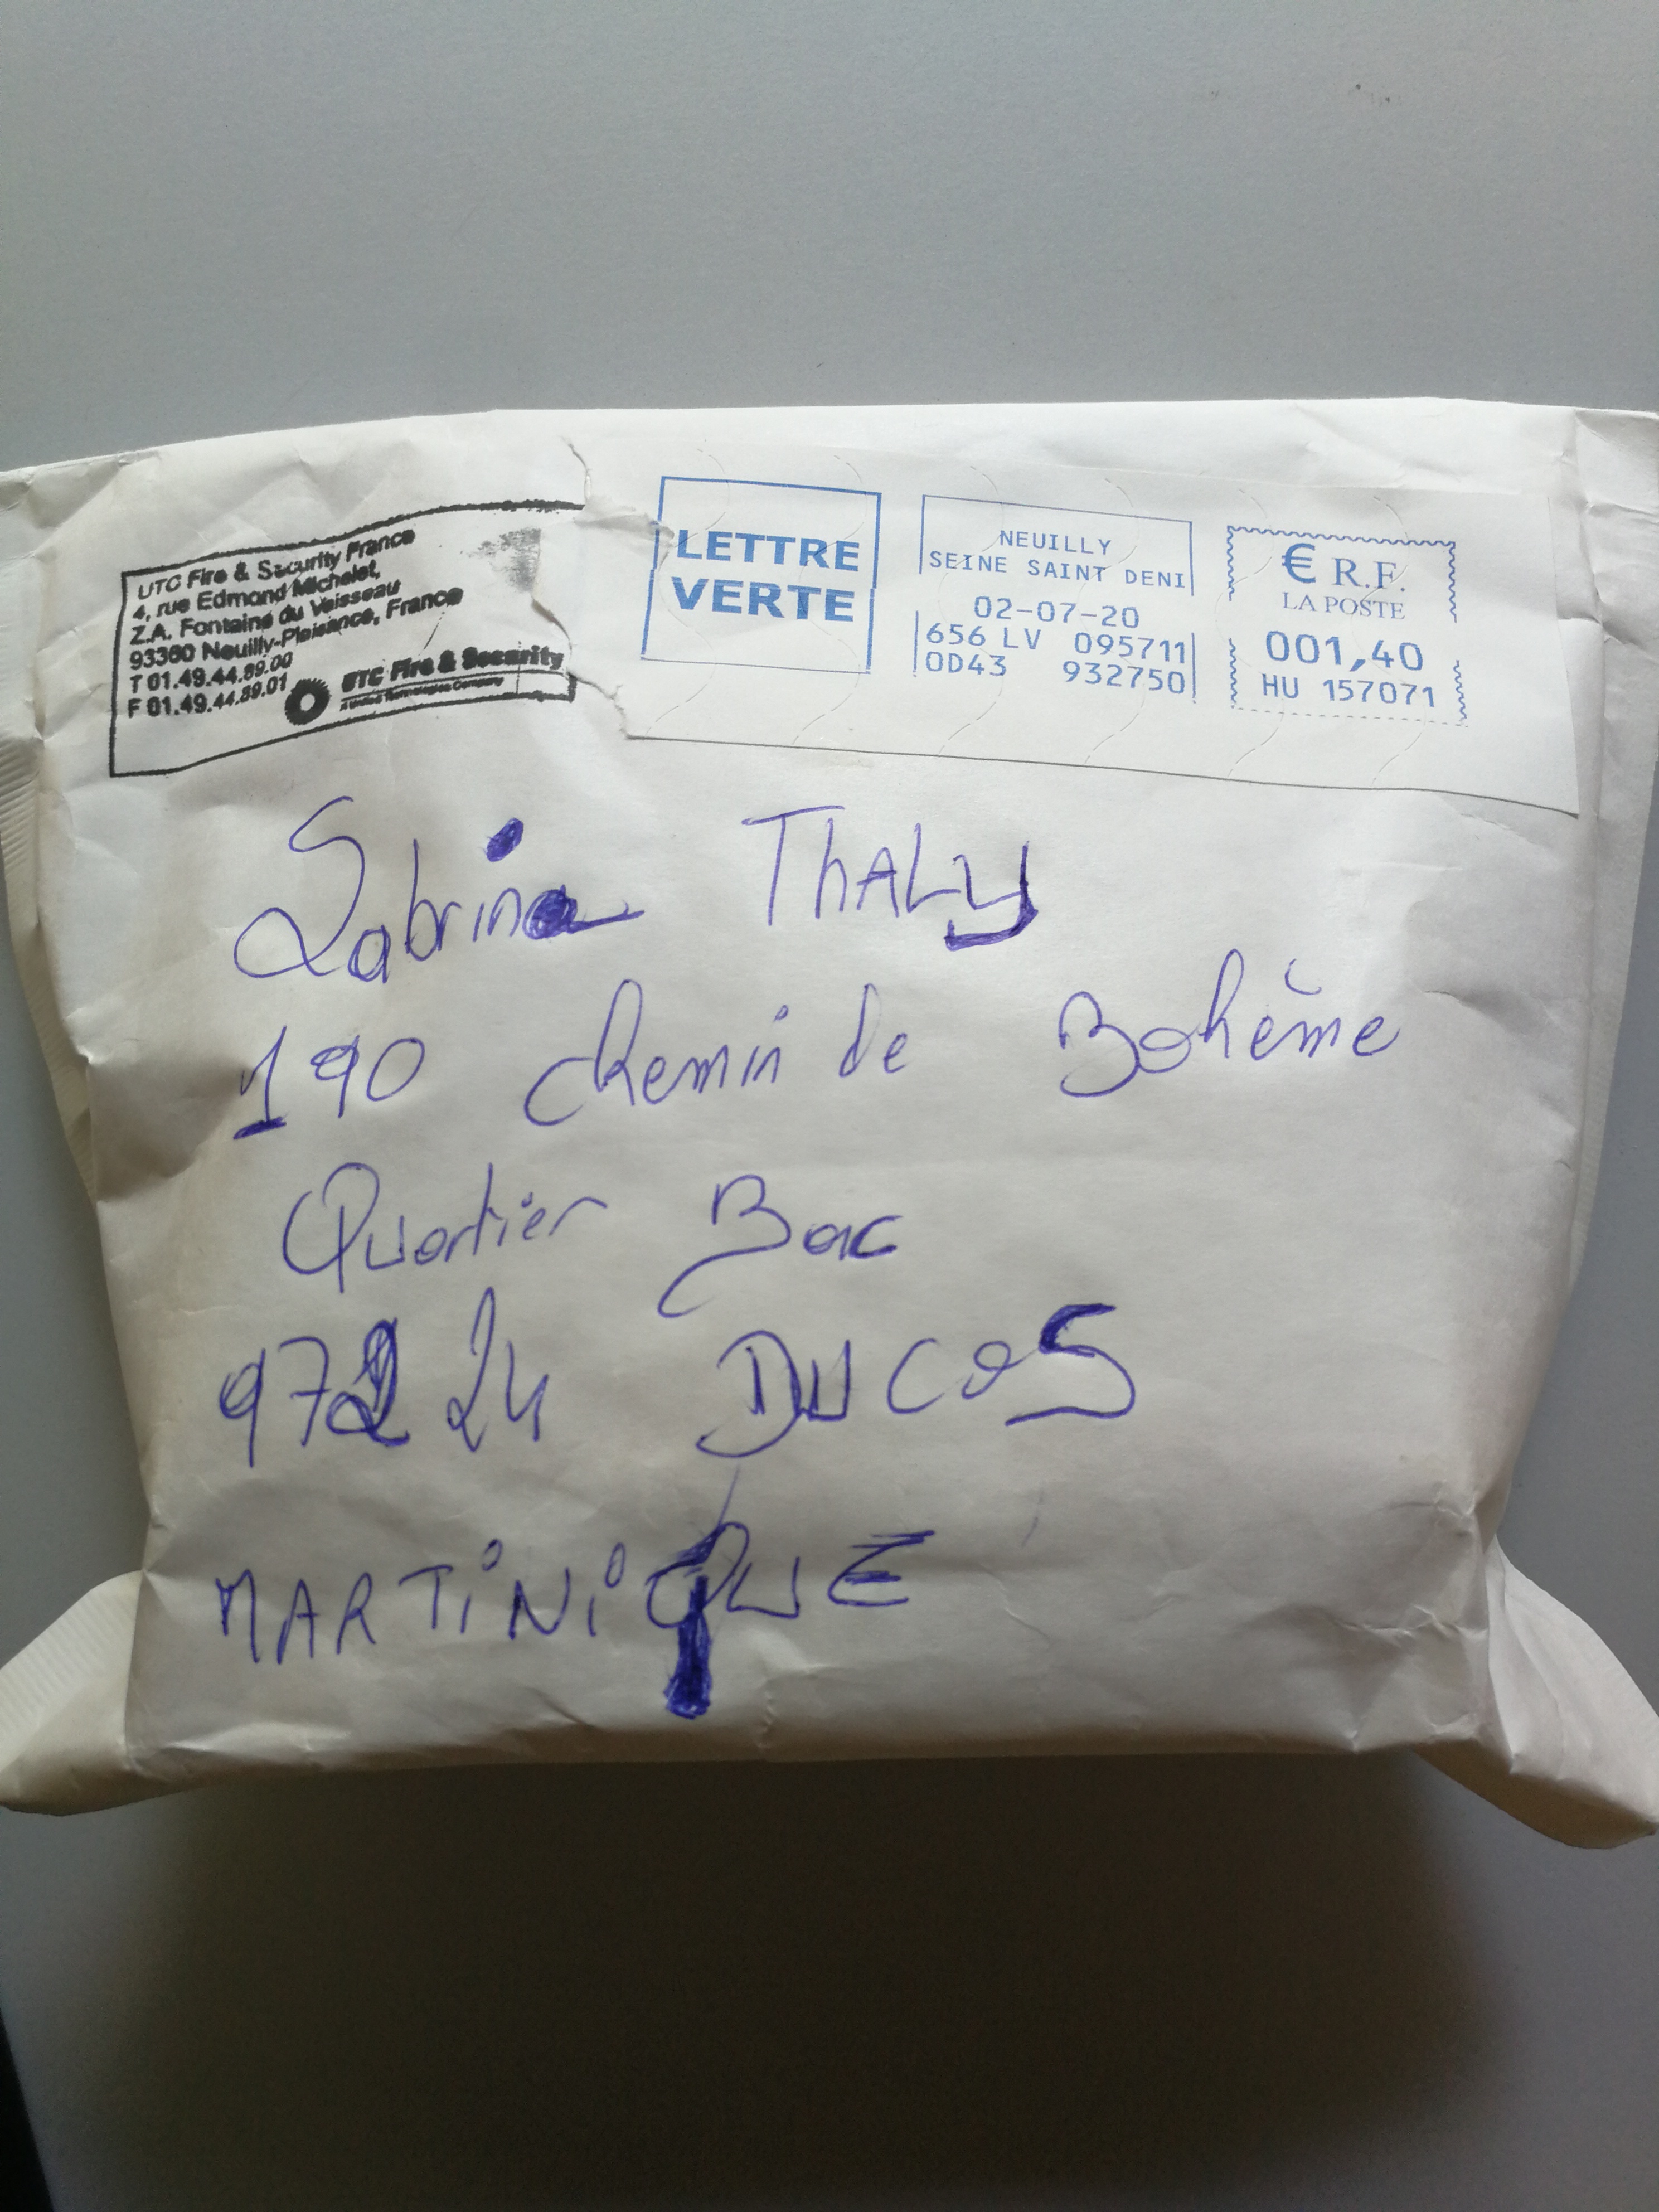 UTC Fire & Security France
4, rue Edmond Michelet,
Z.A. Fontaine du Vaisseau
93360 Neuilly-Plaisance, France
T 01.49.44.89.00
F 01.49.44.89.01
UTC Fire & Security
A United Technologies Company
LETTRE
VERTE
NEUILLY
SEINE SAINT DENI
02-07-20
656 LV 095711
0D43 932750
€ R.F.
LA POSTE
001,40
HU 157071
Sabrina THALY
190 chemin de Bohème
Quartier Bac
97224 DUCOS
MARTINIQUE